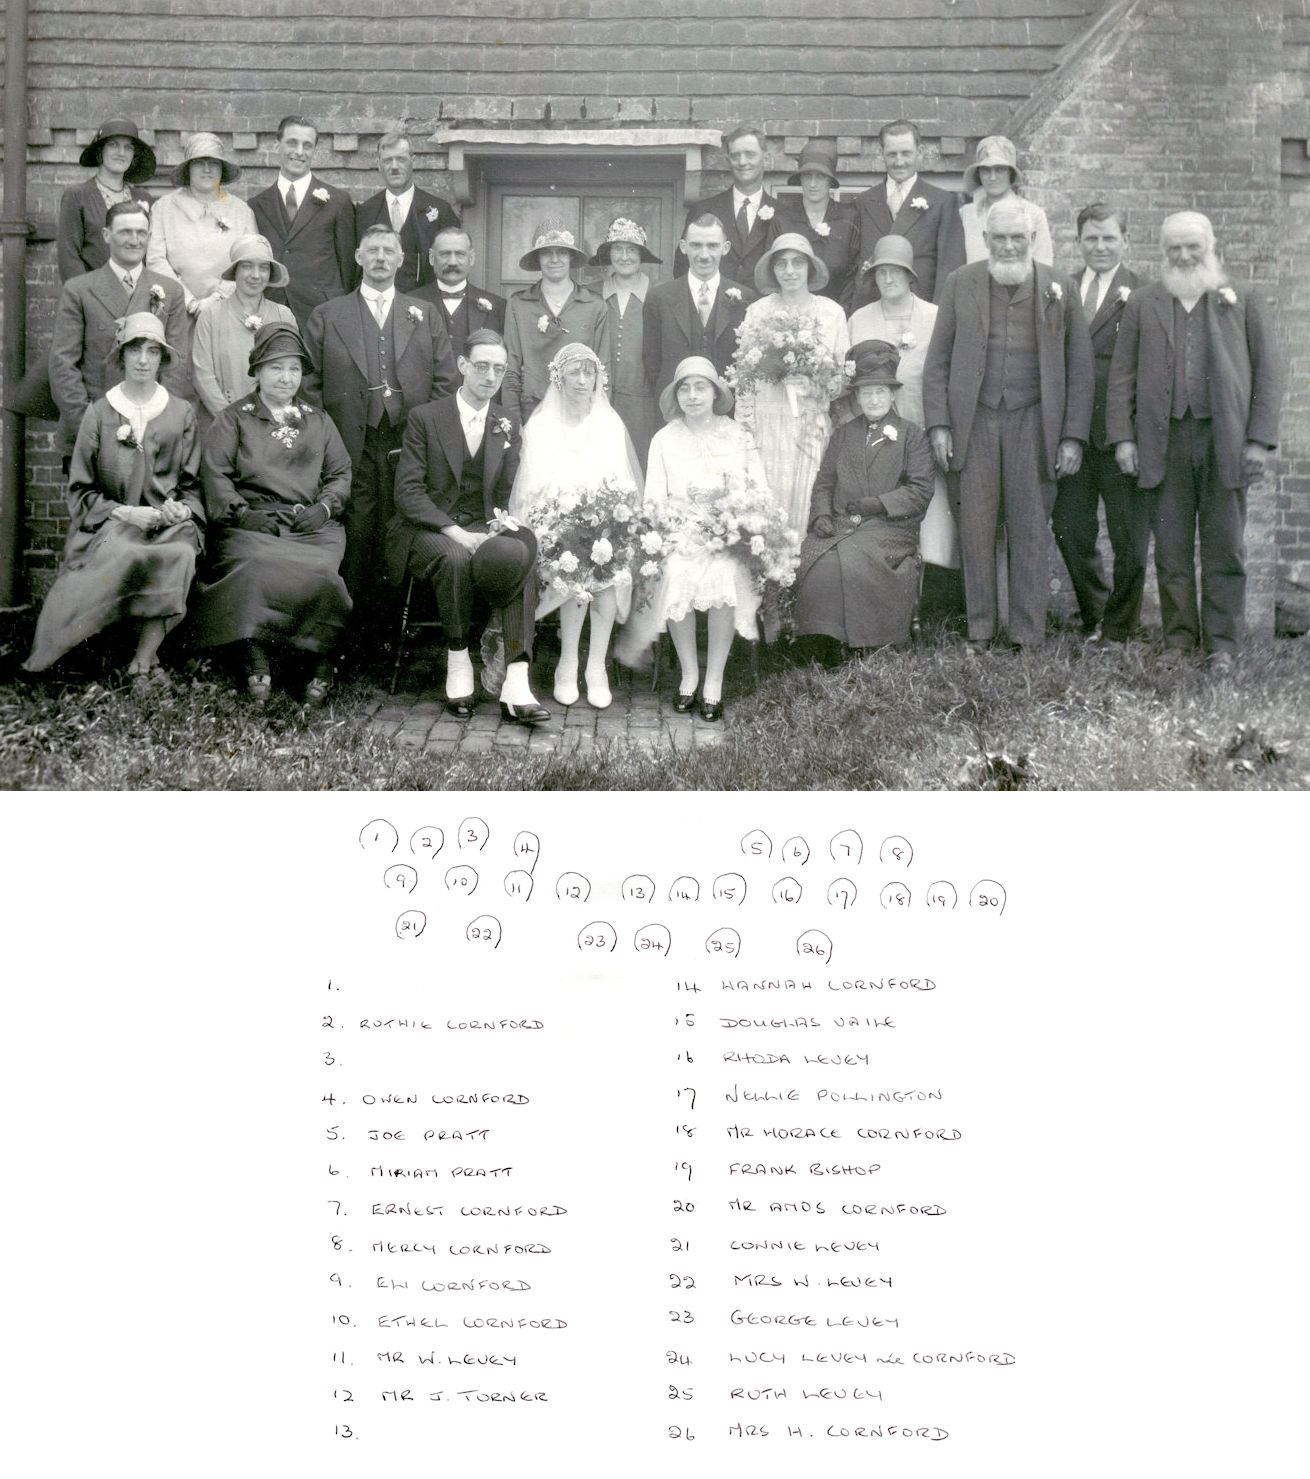 1 2 3 4 5 6 7 8
9 10 11 12 13 14 15 16 17 18 19 20
21 22 23 24 25 26
1.
2. RUTHIE CORNFORD
3.
4. OWEN CORNFORD
5. JOE PRATT
6. MIRIAM PRATT
7. ERNEST CORNFORD
8. MERCY CORNFORD
9. ELI CORNFORD
10. ETHEL CORNFORD
11. MR W. LEVEY
12 MR J. TURNER
13.
14 HANNAH CORNFORD
15 DOUGLAS VAILE
16 RHODA LEVEY
17 NELLIE POLLINGTON
18 MR HORACE CORNFORD
19 FRANK BISHOP
20 MR AMOS CORNFORD
21 CONNIE LEVEY
22 MRS W. LEVEY
23 GEORGE LEVEY
24 LUCY LEVEY née CORNFORD
25 RUTH LEVEY
26 MRS H. CORNFORD